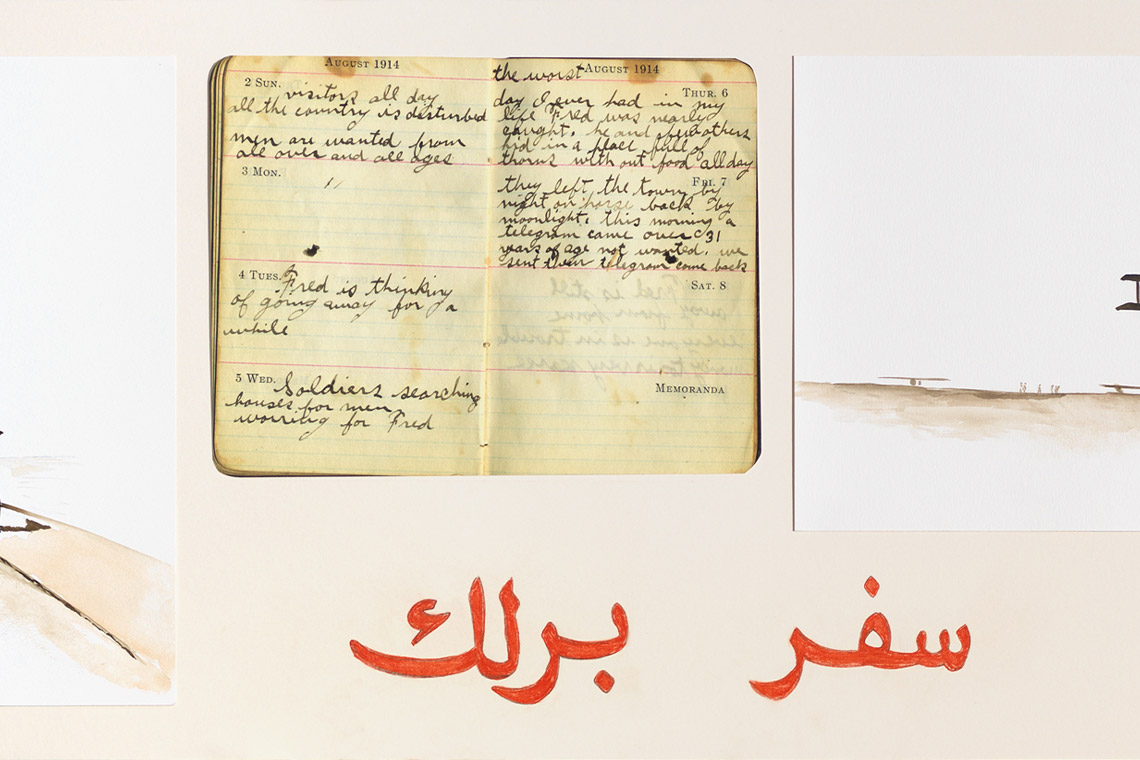 August 1914
2 Sun. visitors all day
all the country is desturbed
men are wanted from
all over and all ages
3 Mon.
4 Tues. Fred is thinking
of going away for a
while
5 Wed. Soldiers searching
houses for men
worring for Fred
the worst August 1914
Thur. 6
day I ever had in my
life Fred was nearly
caught. he and others
hid in a place full of
thorns with out food all day
Fri. 7
they left the town by
night on horse back by
moonlight. this morning a
telegram came over 31
years of age not wanted. we
sent them telegram come back
Sat. 8
Memoranda
سفر برلك